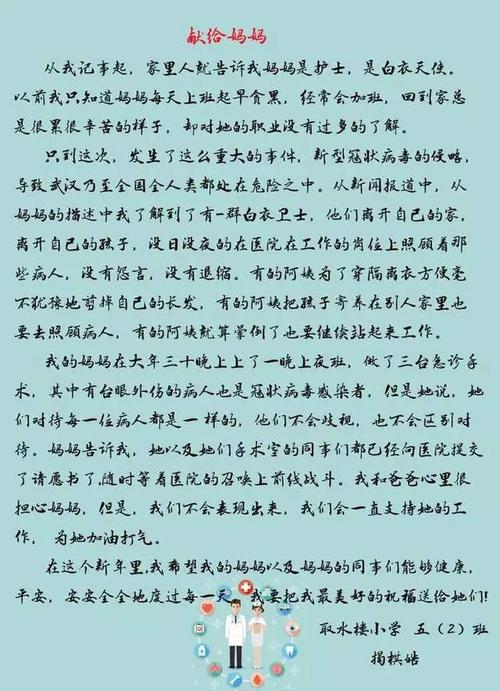 献给妈妈
从我记事起，家里人就告诉我妈妈是护士，是白衣天使。
以前我只知道妈妈每天上班起早贪黑，经常会加班，回到家总
是很累很辛苦的样子，却对她的职业没有过多的了解。
只到这次，发生了这么重大的事件，新型冠状病毒的侵略，
导致武汉乃至全国全人类都处在危险之中。从新闻报道中，从
妈妈的描述中我了解到了有一群白衣卫士，他们离开自己的家，
离开自己的孩子，没日没夜的在医院在工作的岗位上照顾着那
些病人，没有怨言，没有退缩。有的阿姨为了穿隔离衣方便毫
不犹豫地剪掉自己的长发，有的阿姨把孩子寄养在别人家里也
要去照顾病人，有的阿姨就算晕倒了也要继续站起来工作。
我的妈妈在大年三十晚上上了一晚上夜班，做了三台急诊手
术，其中有台眼外伤的病人也是冠状病毒感染者，但是她说，她
们对待每一位病人都是一样的，他们不会歧视，也不会区别对
待。妈妈告诉我，她以及她们手术室的同事们都已经向医院提交
了请愿书了，随时等着医院的召唤上前线战斗。我和爸爸心里很
担心妈妈，但是，我们不会表现出来，我们会一直支持她的工
作，为她加油打气。
在这个新年里，我希望我的妈妈以及妈妈的同事们能够健康，
平安，安安全全地度过每一天，我要把我最美好的祝福送给她们!
取水楼小学 五（2）班
揭棋皓